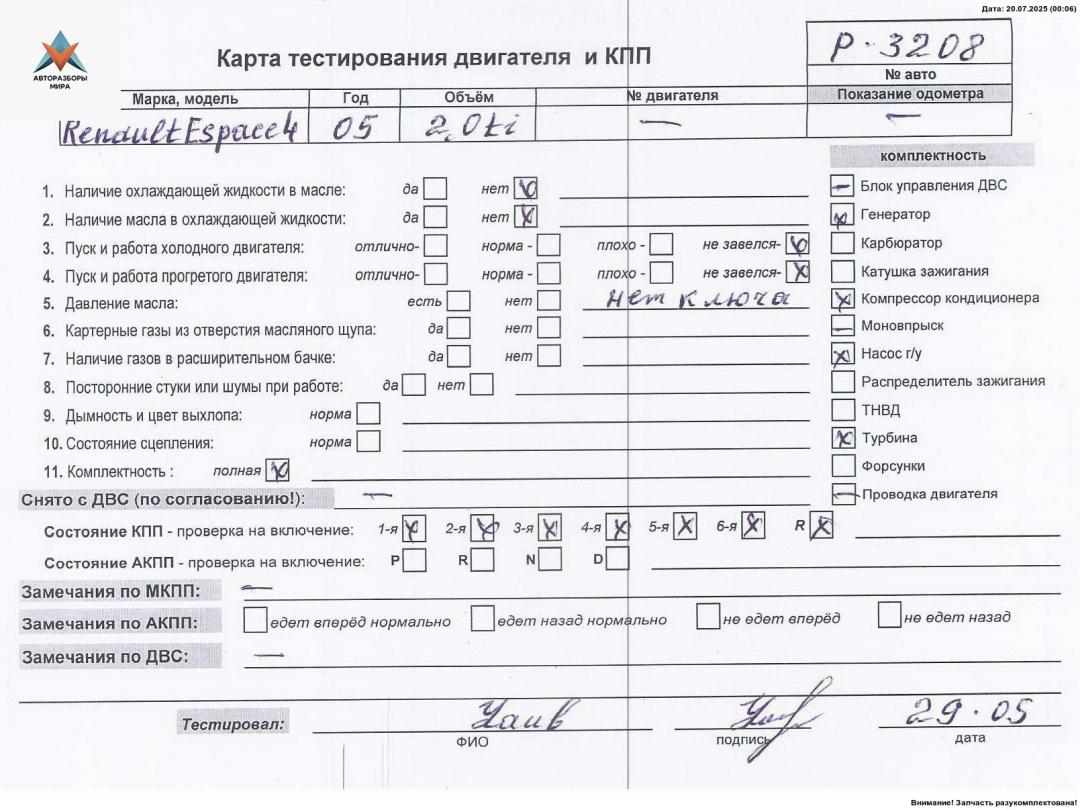 Дата: 20.07.2025 (00:06)
АВТОРАЗБОРЫ
МИРА
Карта тестирования двигателя и КПП
Р-3208
№ авто
Марка, модель Год Объём № двигателя Показание одометра
Renault Espace 4 05 2,0 ti — —
комплектность
1. Наличие охлаждающей жидкости в масле: да нет
2. Наличие масла в охлаждающей жидкости: да нет
3. Пуск и работа холодного двигателя: отлично- норма - плохо - не завелся-
4. Пуск и работа прогретого двигателя: отлично- норма - плохо - не завелся-
5. Давление масла: есть нет нет ключа
6. Картерные газы из отверстия масляного щупа: да нет
7. Наличие газов в расширительном бачке: да нет
8. Посторонние стуки или шумы при работе: да нет
9. Дымность и цвет выхлопа: норма
10. Состояние сцепления: норма
11. Комплектность : полная
Блок управления ДВС
Генератор
Карбюратор
Катушка зажигания
Компрессор кондиционера
Моновпрыск
Насос г/у
Распределитель зажигания
ТНВД
Турбина
Форсунки
Проводка двигателя
Снято с ДВС (по согласованию!): —
Состояние КПП - проверка на включение: 1-я 2-я 3-я 4-я 5-я 6-я R
Состояние АКПП - проверка на включение: P R N D
Замечания по МКПП: —
Замечания по АКПП: едет вперёд нормально едет назад нормально не едет вперёд не едет назад
Замечания по ДВС: —
Тестировал: 29.05
ФИО подпись дата
Внимание! Запчасть разукомплектована!